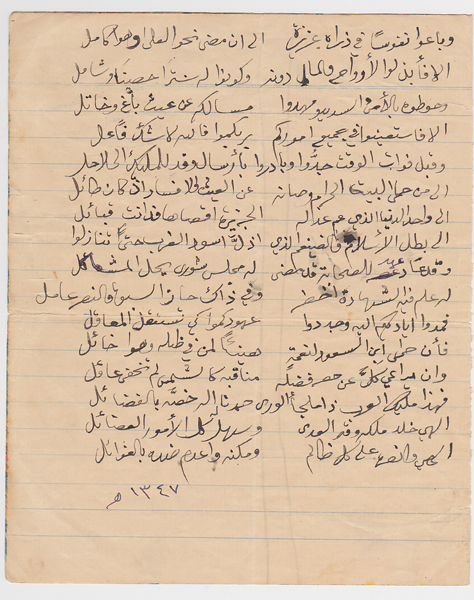 وباعوا نفوسًا في ذراه عزيزة الى ان مضى نحو العلى وهو كامل
الا فابذلوا الأرواح والمال دونه وكونوا له سترًا حصينًا وشامل
وحوطوه بالأمن السديد ومهدوا مسالكه عن عيث باغ وخاتل
الا فاستعينوا في جميع اموركم بربكموا فالله لا شك فاعل
وقبل فوات الوقت جدّوا وبادروا بأرسال وفد للمليك الحلاحل
الى من حمى البيت الحرام وصانه عن العيث والافساد اذ كان طائل
الى واحد الدنيا الذي عم عدله الجزيرة اقصاها فدانت قبائل
الى بطل الأسلام والضيغم الذي اذلّ اسود الغرب حتى تنازلوا
وقد عاد عهد للصحابة قد مضى له مجلس شورى بحل المشاكل
له علم فيه الشهادة اخضر وفي ذاك حاز السبق والنصر عامل
فمدوا اياديكم اليه وجددوا عهودكموا كي تستقل المعاقل
فأن حمى ابن السعود لنعمة هنيئًا لمن في ظله وهو خائل
وان يراعي كلّ عن حصر فضله مناقبه كالشمس لم تخف عاقل
فهذا مليك العرب ذا ملجأ الورى حمدنا اله خصّه بالفضائل
الهي خلد ملكه وقه العدى وسهل له كل الأمور العضائل
الهي وانصره على كل ظالم ومكنه واعدم ضده بالغوائل
١٣٤٧ هـ